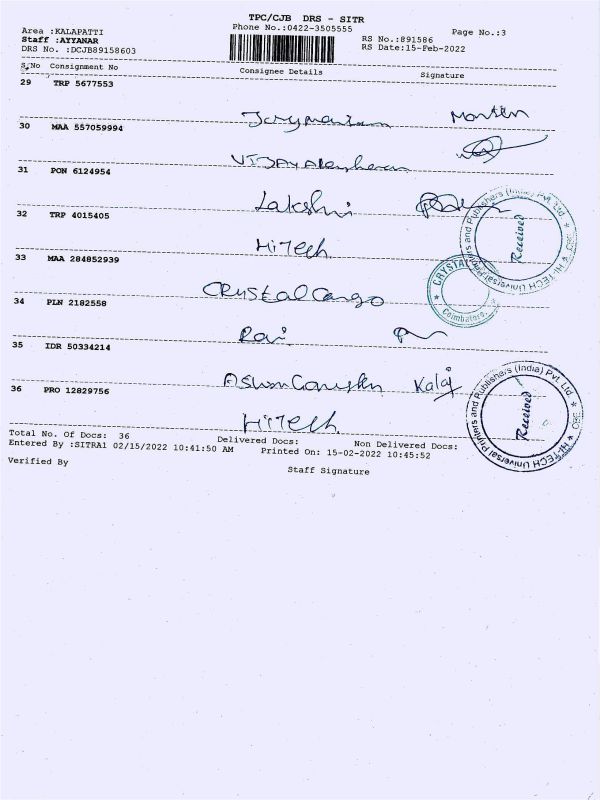 TPC/CJB DRS - SITR
Phone No.:0422-3505555
Page No.:3
Area :KALAPATTI
Staff :AIYANAR
RS No.:891586
DRS No. :DCJB89158603
RS Date:15-Feb-2022
S.No Consignment No Consignee Details Signature
29 TRP 5677553
30 MAA 557059994
31 PON 6124954
Lakshmi
32 TRP 4015405
HiTech
33 MAA 284852939
Crystal Cargo
34 PLN 2182558
Ravi
35 IDR 50334214
Kalaj
36 PRO 12829756
HiTech
Hi-TECH Universal Printers and Publishers (India) Pvt. Ltd.
Received
CRYSTAL
Coimbatore.
Hi-TECH Universal Printers and Publishers (India) Pvt. Ltd.
Received
Total No. Of Docs: 36 Delivered Docs: Non Delivered Docs:
Entered By :SITRA1 02/15/2022 10:41:50 AM Printed On: 15-02-2022 10:45:52
Verified By
Staff Signature